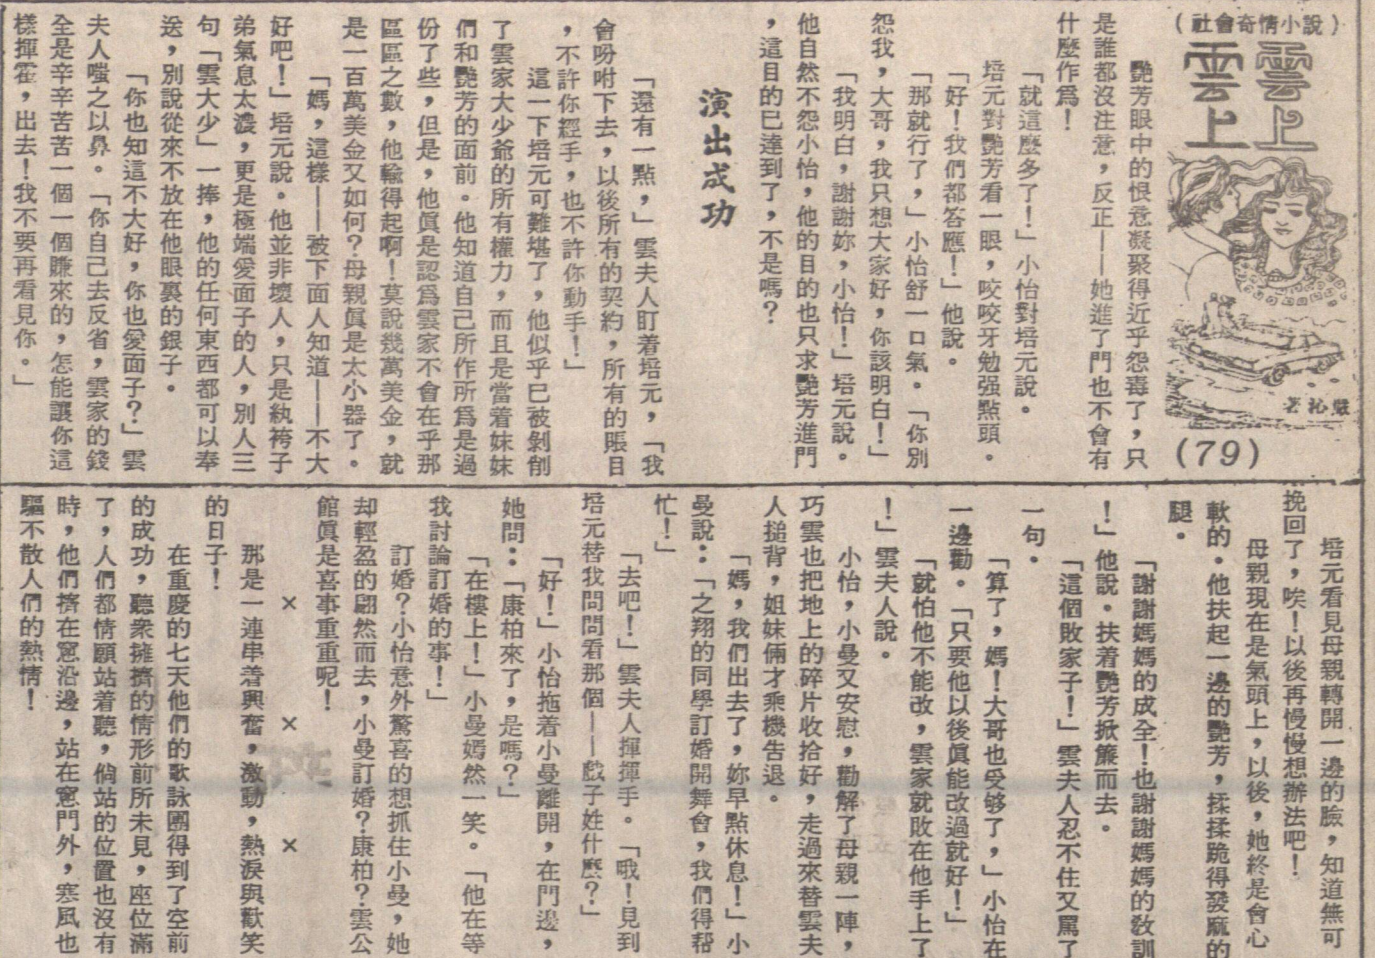 （社會奇情小說）
雲上雲上
嚴沁著
(79)
艷芳眼中的恨意凝聚得近乎怨毒了，只
是誰都沒注意，反正——她進了門也不會有
什麼作爲！
「就這麼多了！」小怡對培元說。
培元對艷芳看一眼，咬咬牙勉强點頭。
「好！我們都答應！」他說。
「那就行了，」小怡舒一口氣。「你別
怨我，大哥，我只想大家好，你該明白！」
「我明白，謝謝妳，小怡！」培元說。
他自然不怨小怡，他的目的也只求艷芳進門
，這目的已達到了，不是嗎？
演出成功
「還有一點，」雲夫人盯着培元，「我
會吩咐下去，以後所有的契約，所有的賬目
，不許你經手，也不許你動手！」
這一下培元可難堪了，他似乎已被剝削
了雲家大少爺的所有權力，而且是當着妹妹
們和艷芳的面前。他知道自己所作所爲是過
份了些，但是，他眞是認爲雲家不會在乎那
區區之數，他輸得起啊！莫說幾萬美金，就
是一百萬美金又如何？母親眞是太小器了。
「媽，這樣——被下面人知道——不大
好吧！」培元說。他並非壞人，只是紈袴子
弟氣息太濃，更是極端愛面子的人，別人三
句「雲大少」一捧，他的任何東西都可以奉
送，別說從來不放在他眼裏的銀子。
「你也知這不大好，你也愛面子？」雲
夫人嗤之以鼻。「你自己去反省，雲家的錢
全是辛辛苦苦一個一個賺來的，怎能讓你這
樣揮霍，出去！我不要再看見你。」
培元看見母親轉開一邊的臉，知道無可
挽回了，唉！以後再慢慢想辦法吧！
母親現在是氣頭上，以後，她終是會心
軟的。他扶起一邊的艷芳，揉揉跪得發麻的
腿。
「謝謝媽媽的成全！也謝謝媽媽的敎訓
！」他說。扶着艷芳掀簾而去。
「這個敗家子！」雲夫人忍不住又罵了
一句。
「算了，媽！大哥也受够了，」小怡在
一邊勸。「只要他以後眞能改過就好！」
「就怕他不能改，雲家就敗在他手上了
！」雲夫人說。
小怡，小曼又安慰，勸解了母親一陣，
巧雲也把地上的碎片收拾好，走過來替雲夫
人搥背，姐妹倆才乘機告退。
「媽，我們出去了，妳早點休息！」小
曼說：「之翔的同學訂婚開舞會，我們得幫
忙！」
「去吧！」雲夫人揮揮手。「哦！見到
培元替我問問看那個——戲子姓什麼？」
「好！」小怡拖着小曼離開，在門邊，
她問：「康柏來了，是嗎？」
「在樓上！」小曼嫣然一笑。「他在等
我討論訂婚的事！」
訂婚？小怡意外驚喜的想抓住小曼，她
却輕盈的翩然而去，小曼訂婚？康柏？雲公
館眞是喜事重重呢！
× × ×
那是一連串着興奮，激動，熱淚與歡笑
的日子！
在重慶的七天他們的歌詠團得到了空前
的成功，聽衆擁擠的情形前所未見，座位滿
了，人們都情願站着聽，倘站的位置也沒有
時，他們擠在窗沿邊，站在窗門外，寒風也
驅不散人們的熱情！